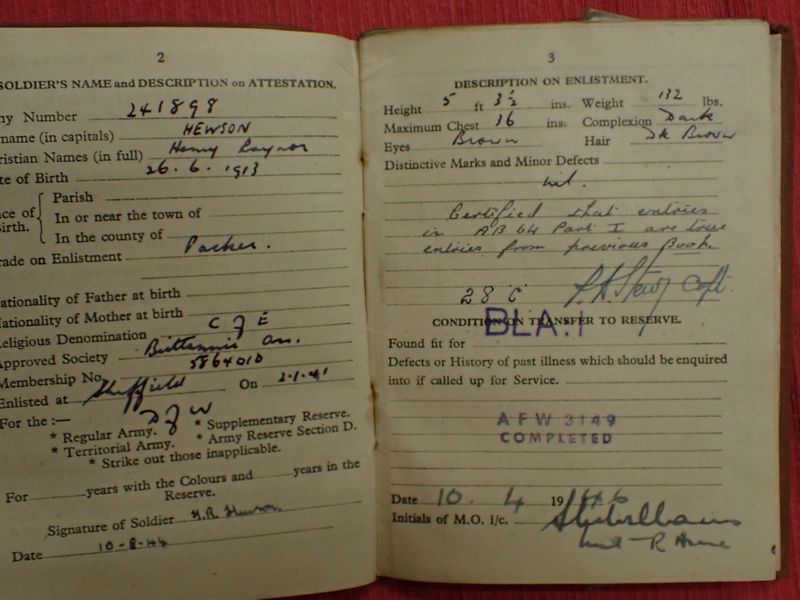 2
SOLDIER'S NAME and DESCRIPTION on ATTESTATION.
my Number 241898
name (in capitals) HEWSON
ristian Names (in full) Henry Raynor
te of Birth 26.6.1913
Parish
ce of In or near the town of
irth.
In the county of
rade on Enlistment Packer.
ationality of Father at birth
Nationality of Mother at birth
Religious Denomination C of E
Approved Society Britannic As.
Membership No. 5864010
Enlisted at Sheffield On 2.1.41
For the :— D of W
* Regular Army. * Supplementary Reserve.
* Territorial Army. * Army Reserve Section D.
* Strike out those inapplicable.
For years with the Colours and years in the
Reserve.
Signature of Soldier H.R. Hewson.
Date 10-8-44
3
DESCRIPTION ON ENLISTMENT.
Height 5 ft 3½ ins. Weight 132 lbs.
Maximum Chest 36 ins. Complexion Dark
Eyes Brown Hair Dk Brown
Distinctive Marks and Minor Defects
nil.
Certified that entries
in AB 64 Part I are true
entries from previous Book.
Capt.
CONDITION ON TRANSFER TO RESERVE.
BLA.1
Found fit for
Defects or History of past illness which should be enquired
into if called up for Service.
AFW 3149
COMPLETED
Date 10. 4 1946
Initials of M.O. i/c.